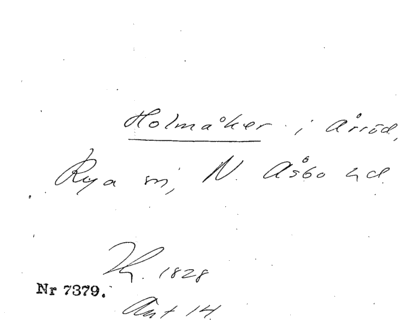 Holmåker i Årröd,
Rya sn, N. Åsbo hd.
Lk. 1828
Nr 7379.
Akt 14